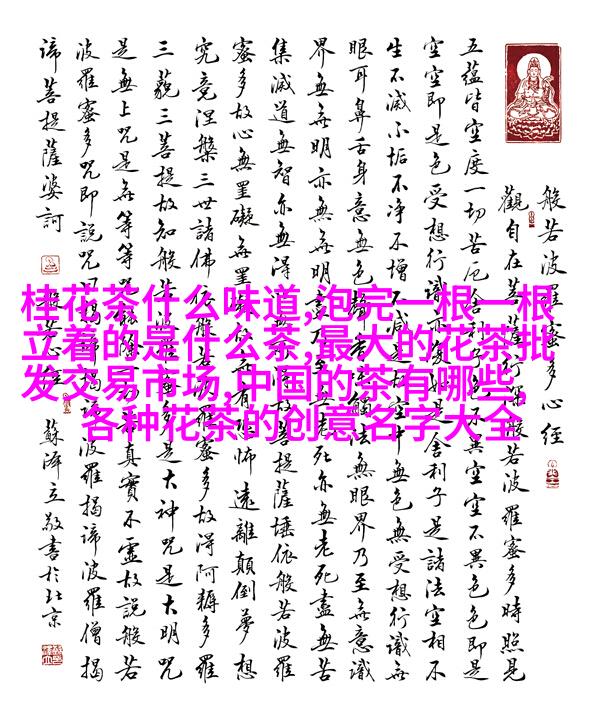 桂花茶什么味道,泡完一根一根
立着的是什么茶,最大的花茶批
发交易市场,中国的茶有哪些,
各种花茶的创意名字大全
般若波羅蜜多心經
觀自在菩薩行深般若波羅蜜多時照見
五蘊皆空度一切苦厄舍利子色不異空空不異色色即是
空空即是色受想行識亦復如是舍利子是諸法空相不
生不滅不垢不净不增不減是故空中無色無受想行識無
眼耳鼻舌身意無色聲香味觸法無眼界乃至無意識
界無無明亦無無明盡乃至無老死亦無老死盡無苦
集滅道無智亦無得故菩提薩埵依般若波羅
蜜多故心無罣礙無罣無有怖遠離顛倒夢想
究竟涅槃三世諸佛依般若波羅蜜多故得阿耨多羅
三藐三菩提故知般波羅蜜多是大神咒是大明咒
是無上咒是無等等咒能除一切苦真實不虛故說般若
波羅蜜多咒即說咒曰揭諦波羅揭諦波羅僧揭
諦菩提薩婆訶
般若心經
立敬書於北京